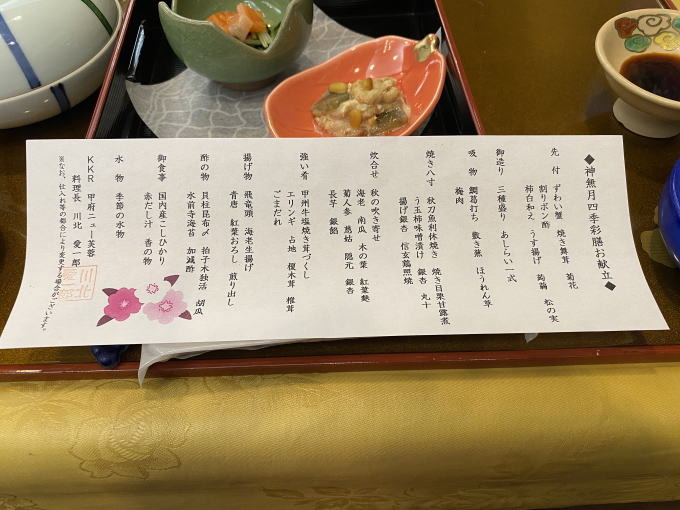 ◆神無月四季彩膳お献立◆
先付 ずわい蟹 焼き舞茸 菊花
割りポン酢
柿白和え、うす揚げ 蒟蒻 松の実
御造り 三種盛り あしらい一式
吸物 鯛葛打ち 敷き葱 ほうれん草
梅肉
焼き八寸 秋刀魚利休焼き 焼き目栗甘露煮
うま玉柿味噌漬け 銀杏 丸十
揚げ銀杏 信玄鶏照焼
炊合せ 秋の吹き寄せ
海老 南瓜 木の葉 紅葉麩
菊人参 蔦姑 隠元 銀杏
長芋 銀餡
強い肴 甲州牛塩焼き茸づくし
エリンギ 占地 榎木茸 椎茸
ごまだれ
揚げ物 飛竜頭 海老生揚げ
青唐 紅葉おろし 煎り出し
酢の物 貝柱昆布〆 拍子木独活 胡瓜
水前寺海苔 加減酢
御食事 国内産こしひかり
赤だし汁 香の物
水物 季節の水物
KKR 甲府ニュー芙蓉
料理長 川北 愛一郎
※なお、仕入れ等の都合により変更する場合がございます。